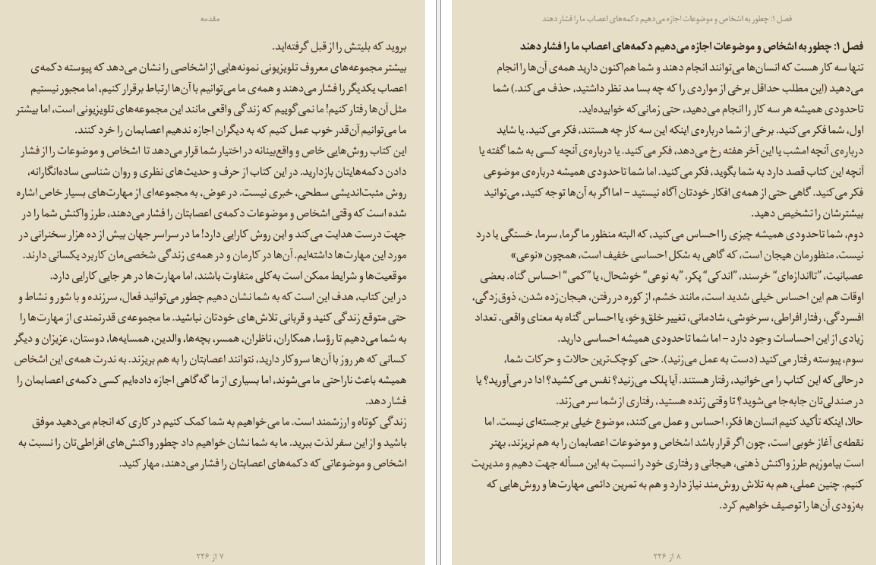 مقدمه
بروید که بلیتش را از قبل گرفته‌اید.
بیشتر مجموعه‌های معروف تلویزیونی نمونه‌هایی از اشخاصی را نشان می‌دهد که پیوسته دکمه‌ی
اعصاب یکدیگر را فشار می‌دهند و همه‌ی ما می‌توانیم با آن‌ها ارتباط برقرار کنیم، اما مجبور نیستیم
مثل آن‌ها رفتار کنیم! ما نمی‌گوییم که زندگی واقعی مانند این مجموعه‌های تلویزیونی است، اما بیشتر
ما می‌توانیم آن‌قدر خوب عمل کنیم که به دیگران اجازه ندهیم اعصابمان را خرد کنند.
این کتاب روش‌هایی خاص و واقع‌بینانه در اختیار شما قرار می‌دهد تا اشخاص و موضوعات را از فشار
دادن دکمه‌هایتان بازدارید. در این کتاب از حرف و حدیث‌های نظری و روان شناسی ساده‌انگارانه،
روش مثبت‌اندیشی سطحی، خبری نیست. در عوض، به مجموعه‌ای از مهارت‌های بسیار خاص اشاره
شده است که وقتی اشخاص و موضوعات دکمه‌ی اعصابتان را فشار می‌دهند، طرز واکنش شما را در
جهت درست هدایت می‌کند و این روش کارایی دارد! ما در سراسر جهان بیش از ده هزار سخنرانی در
مورد این مهارت‌ها داشته‌ایم. آن‌ها در کارمان و در همه‌ی زندگی شخصی‌مان کاربرد یکسانی دارند.
موقعیت‌ها و شرایط ممکن است به‌کلی متفاوت باشند، اما مهارت‌ها در هر جایی کارایی دارد.
در این کتاب، هدف این است که به شما نشان دهیم چطور می‌توانید فعال، سرزنده و با شور و نشاط و
حتی متوقع زندگی کنید و قربانی تلاش‌های خودتان نباشید. ما مجموعه‌ی قدرتمندی از مهارت‌ها را
به شما می‌دهیم تا رؤسا، همکاران، ناظران، همسر، بچه‌ها، والدین، همسایه‌ها، دوستان، عزیزان و دیگر
کسانی که هر روز با آن‌ها سروکار دارید، نتوانند اعصابتان را به هم بریزند. به ندرت همه‌ی این اشخاص
همیشه باعث ناراحتی ما می‌شوند، اما بسیاری از ما گه‌گاهی اجازه داده‌ایم کسی دکمه‌ی اعصابمان را
فشار دهد.
زندگی کوتاه و ارزشمند است. ما می‌خواهیم به شما کمک کنیم در کاری که انجام می‌دهید موفق
باشید و از این سفر لذت ببرید. ما به شما نشان خواهیم داد چطور واکنش‌های افراطی‌تان را نسبت به
اشخاص و موضوعاتی که دکمه‌های اعصابتان را فشار می‌دهند، مهار کنید.
۷ از ۲۲۶
فصل ۱: چطور به اشخاص و موضوعات اجازه می‌دهیم دکمه‌های اعصاب ما را فشار دهند
فصل ۱: چطور به اشخاص و موضوعات اجازه می‌دهیم دکمه‌های اعصاب ما را فشار دهند
تنها سه کار هست که انسان‌ها می‌توانند انجام دهند و شما هم‌اکنون دارید همه‌ی آن‌ها را انجام
می‌دهید (این مطلب حداقل برخی از مواردی را که چه بسا مد نظر داشتید، حذف می‌کند.) شما
تاحدودی همیشه هر سه کار را انجام می‌دهید، حتی زمانی‌که خوابیده‌اید.
اول، شما فکر می‌کنید. برخی از شما درباره‌ی اینکه این سه کار چه هستند، فکر می‌کنید. یا شاید
درباره‌ی آنچه امشب یا این آخر هفته رخ می‌دهد، فکر می‌کنید. یا درباره‌ی آنچه کسی به شما گفته یا
آنچه این کتاب قصد دارد به شما بگوید، فکر می‌کنید. اما شما تاحدودی همیشه درباره‌ی موضوعی
فکر می‌کنید. گاهی حتی از همه‌ی افکار خودتان آگاه نیستید – اما اگر به آن‌ها توجه کنید، می‌توانید
بیشترشان را تشخیص دهید.
دوم، شما تاحدودی همیشه چیزی را احساس می‌کنید، که البته منظور ما گرما، سرما، خستگی یا درد
نیست. منظورمان هیجان است، که گاهی به شکل احساسی خفیف است، همچون «نوعی»
عصبانیت، "تااندازه‌ای" خرسند، "اندکی" پکر، "به نوعی" خوشحال، یا "کمی" احساس گناه. بعضی
اوقات هم این احساس خیلی شدید است، مانند خشم، از کوره در رفتن، هیجان‌زده شدن، ذوق‌زدگی،
افسردگی، رفتار افراطی، سرخوشی، شادمانی، تغییر خلق‌وخو، یا احساس گناه به معنای واقعی. تعداد
زیادی از این احساسات وجود دارد – اما شما تاحدودی همیشه احساسی دارید.
سوم، پیوسته رفتار می‌کنید (دست به عمل می‌زنید). حتی کوچک‌ترین حالات و حرکات شما،
درحالی‌که این کتاب را می خوانید، رفتار هستند. آیا پلک می‌زنید؟ نفس می‌کشید؟ ادا در می‌آورید؟ یا
در صندلی‌تان جابه‌جا می‌شوید؟ تا وقتی زنده هستید، رفتاری از شما سر می‌زند.
حالا، اینکه تأکید کنیم انسان‌ها فکر، احساس و عمل می‌کنند، موضوع خیلی برجسته‌ای نیست. اما
نقطه‌ی آغاز خوبی است، چون اگر قرار باشد اشخاص و موضوعات اعصابمان را به هم نریزند، بهتر
است بیاموزیم طرز واکنش ذهنی، هیجانی و رفتاری خود را نسبت به این مسأله جهت دهیم و مدیریت
کنیم. چنین عملی، هم به تلاش روش‌مند نیاز دارد و هم به تمرین دائمی مهارت‌ها و روش‌هایی که
به‌زودی آن‌ها را توصیف خواهیم کرد.
۸ از ۲۲۶